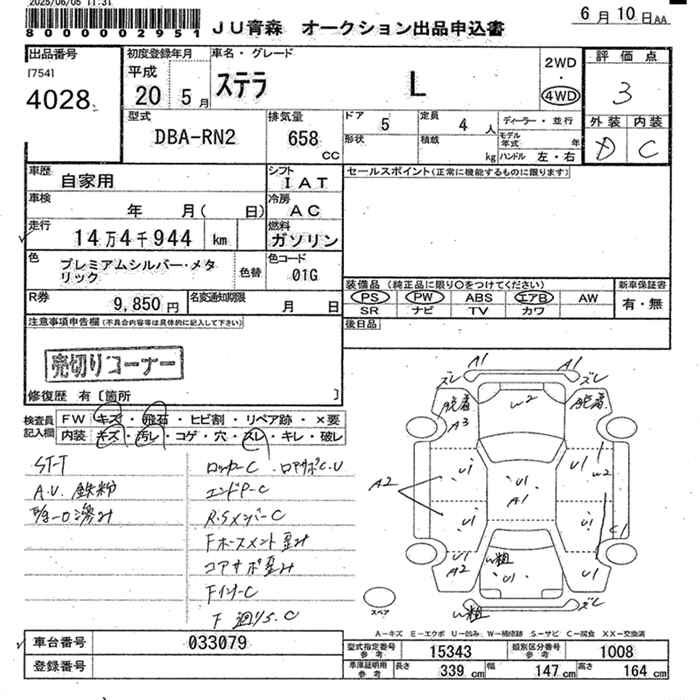 2025/06/05 11:31
8000002951
JU青森 オークション出品申込書
6月10日AA
出品番号
[754]
4028
初度登録年月
平成
20 5月
車名・グレード
ステラ L
2WD
・
4WD
評価点
3
外装 内装
D C
型式
DBA-RN2
排気量
658
CC
ドア 5
定員 4人
形状
積載 kg
ディーラー・並行
モデル年式 年
ハンドル 左・右
車歴
自家用
シフト
IAT
車検
年 月( 日)
冷房
AC
走行
14万4千944 km
燃料
ガソリン
色
プレミアムシルバー・メタリック
色替
色コード
01G
R券 9,850円
名変通知期限 月 日
セールスポイント(正常に機能するものに限ります)
装備品(純正品に限り○をつけてください)
PS PW ABS エアB AW
SR ナビ TV カワ
新車保証書
有・無
後日品
注意事項申告欄(不具合内容等は具体的に記入して下さい)
売切りコーナー
修復歴 有〔箇所 〕
検査員記入欄
FW キズ・飛石・ヒビ割・リペア跡・×要
内装 キズ・汚レ・コゲ・穴・スレ・キレ・破レ
ST-T
A.U 鉄粉
ロッカーC
エンドP-C
R.SメンバーC
コアサポ歪み
FインナーC
A1
A1
ズレ
ズレ
脱着
脱着
A3
W2
U1
U1
U1
A1
W2
A2
U1
U1
C1
U1
A2
W粗
U1
U1
W粗
ズレ
スペア
A－キズ E－エクボ U－凹み W－補修跡 S－サビ C－腐食 XX－交換済
車台番号 033079
登録番号
型式指定番号 参考 15343
類別区分番号 参考 1008
車庫証明用 参考
長さ 339cm 幅 147cm 高さ 164cm